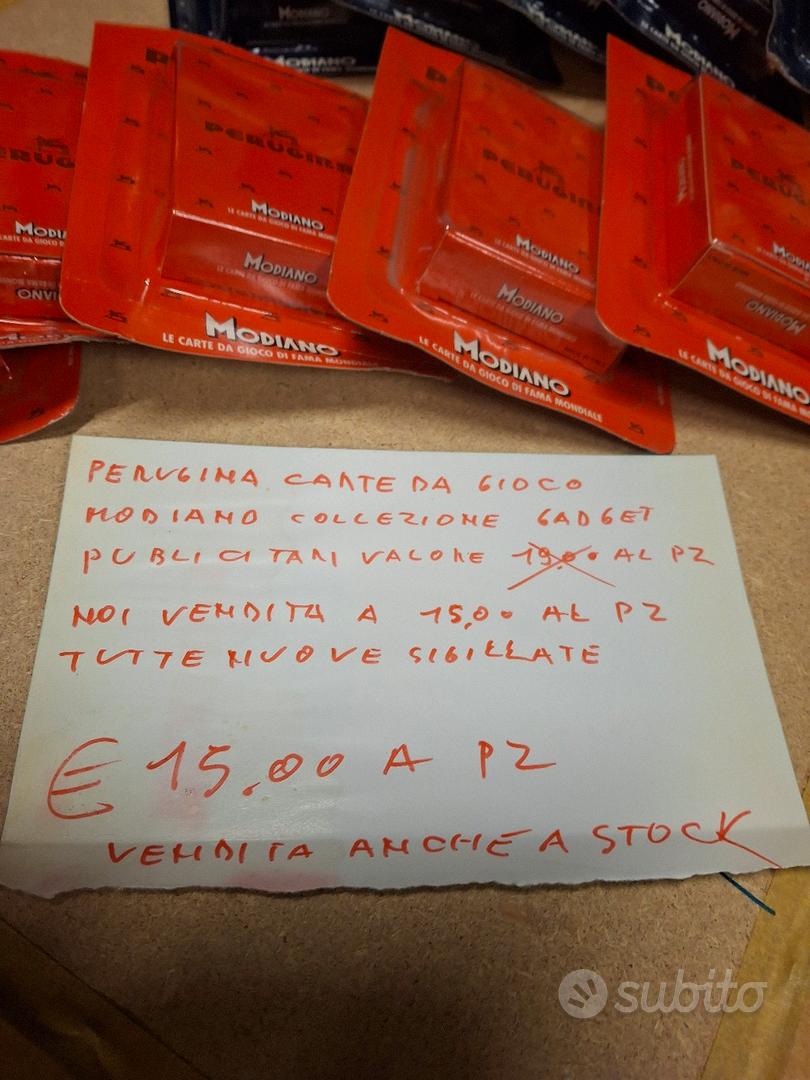 MODIANO
MODIANO
MODIANO
MODIANO
PERUGINA
MODIANO
LE CARTE DA GIOCO DI FAMA MONDIALE
MODIANO
MODIANO
LE CARTE DA GIOCO DI FAMA MONDIALE
PERUGINA
MODIANO
MODIANO
MODIANO
LE CARTE DA GIOCO DI FAMA MONDIALE
PERUGINA
MODIANO
MODIANO
MODIANO
LE CARTE DA GIOCO DI FAMA MONDIALE
PERUGINA CARTE DA GIOCO
MODIANO COLLEZIONE GADGET
PUBLICITARI VALORE 19,00 AL PZ
NOI VENDITA A 15,00 AL PZ
TUTTE NUOVE SIGILLATE
€ 15,00 A PZ
VENDITA ANCHE A STOCK
subito